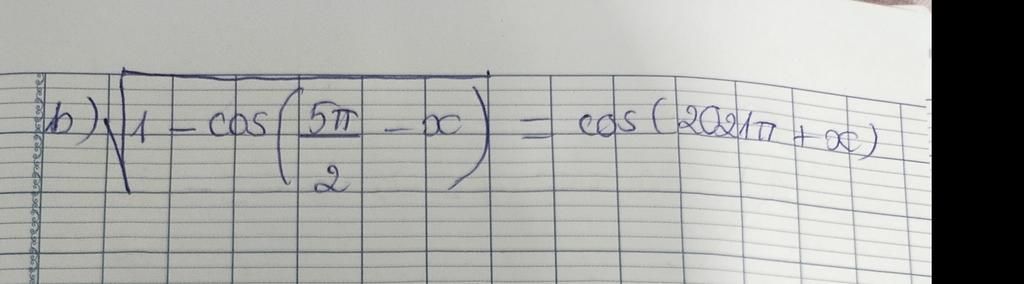 b) √(1 - cos(5π/2 - x)) = cos(2021π + x)